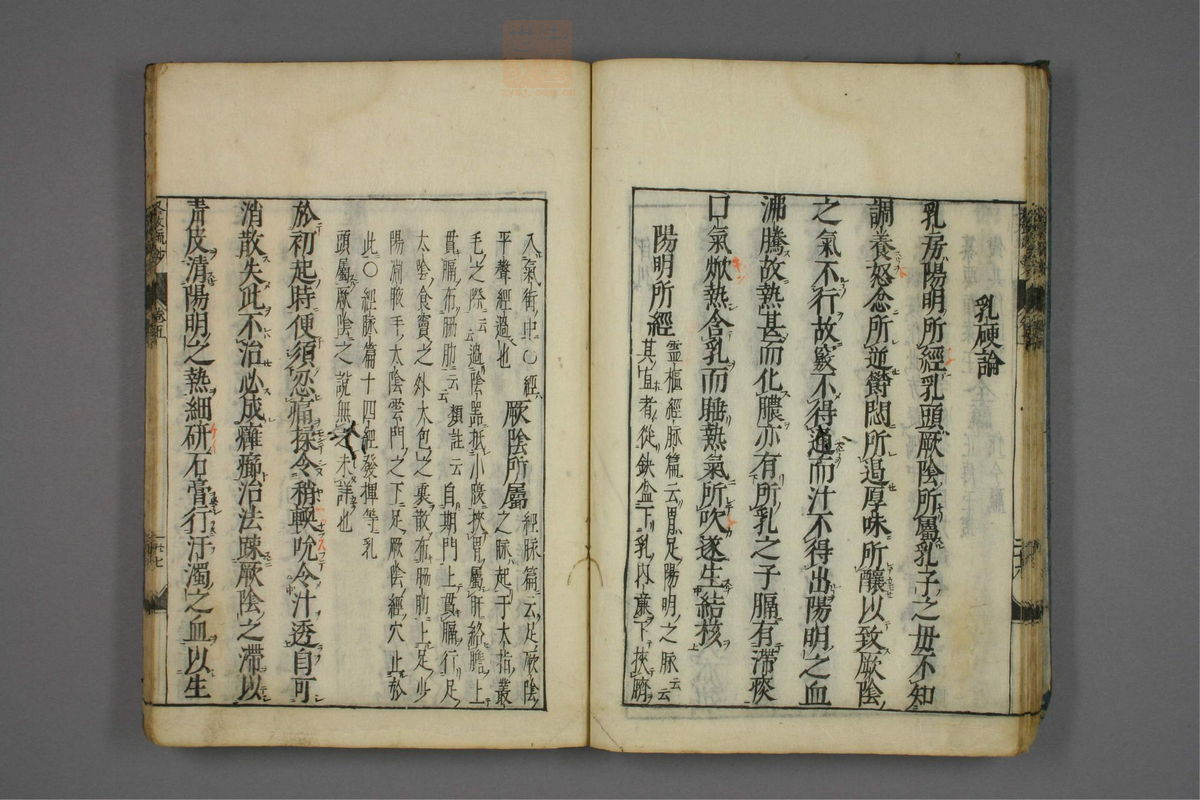 乳硬論
乳房陽明所經乳頭厥陰所屬乳子之毋不知
調養怒忿所逆欝悶所遏厚味所釀以致厥陰
之氣不行故竅不得通而汁不得出陽明之血
沸騰故熱甚而化膿亦有所乳之子膈有滯痰
口氣焮熱含乳而睡熱氣所吹遂生結核
陽明所經
靈樞經脉篇云胃足陽明之脉云云
其直者從缺盆下乳内廉下挾臍
入氣街中〇經
平聲經過也
厥陰所屬
經脉篇云足厥陰
之脉起于大指叢
毛之際云云過陰器抵小腹挾胃屬肝絡膽上
貫膈布脇肋云云類註云自期門上貫膈行足
太陰食竇之外大包之裏散布脇肋上足少
陽淵腋手太陰雲門之下足厥陰經穴止於
此〇經脉篇十四經發揮等乳
頭屬厥陰之說無未詳也
於初起時便須忍痛揉令稍輭吮令汁透自可
消散失此不治必成癰癤治法踈厥陰之滯以
青皮清陽明之熱細研石膏行汙濁之血以生